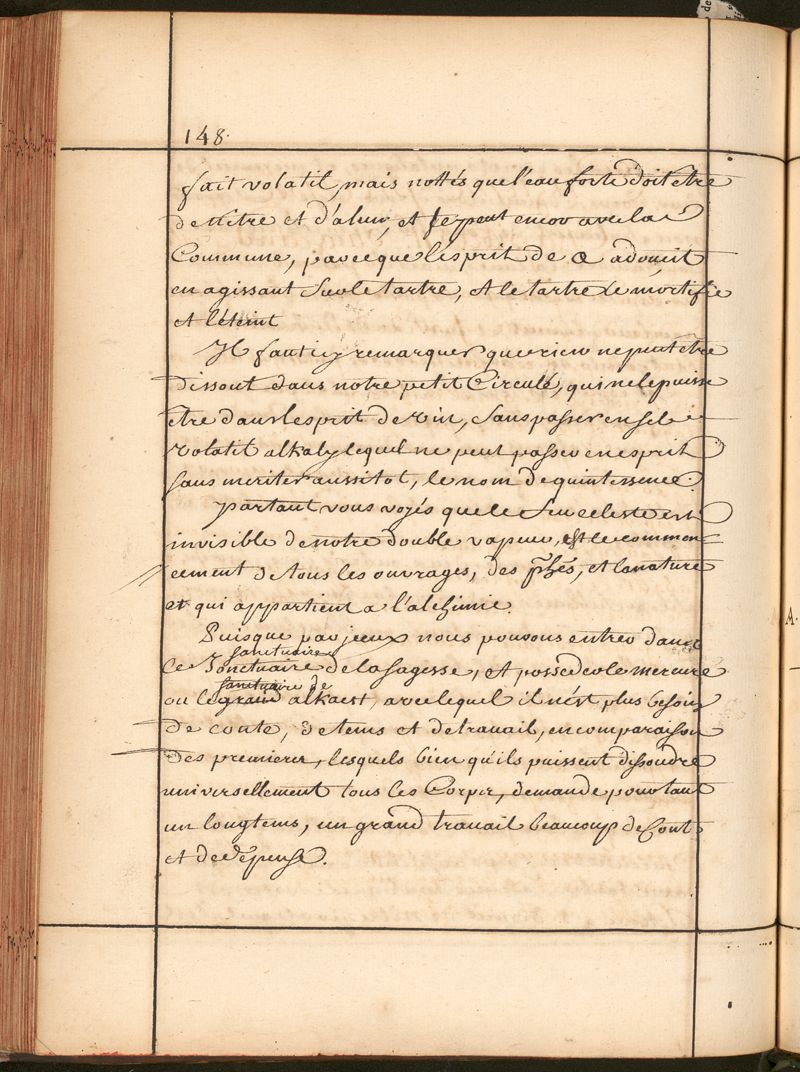 148.
fait volatil, mais nottés que l'eau forte doit etre
de Nitre et d'alun, et se peut encor avec la
Commune, parceque l'esprit de adoucit
en agissant sur le tartre, et le tartre le mortifie
et l'éteint
Il faut icy remarquer que rien ne peut etre
dissout dans notre petit Circulé, qui ne le puisse
etre dans l'esprit de vin, sans passer en sel
volatil alkaly lequel ne peut passer en esprit
sans meriter aussitot, le nom de quintessence.
partant vous voyés que le feu celeste est
invisible de notre double vapeur, est le commen=
cement de tous les ouvrages, des phes, et la nature
et qui appartient a l'alchimie.
Puisque par jceux nous pouvons entrer dans
sanctuaire
le Sonctuaire de la sagesse, et posséder le mercure
sanctuaire de
ou le grand alkaest, avec lequel il n'est plus besoin
de conte, de tems et de travail, en comparaison
des premieres, lesquels bien qu'ils puissent dissoudre
universellement tous les Corps, demande pourtant
un longtems, un grand travail beaucoup de Cont
et de dépense.
A.